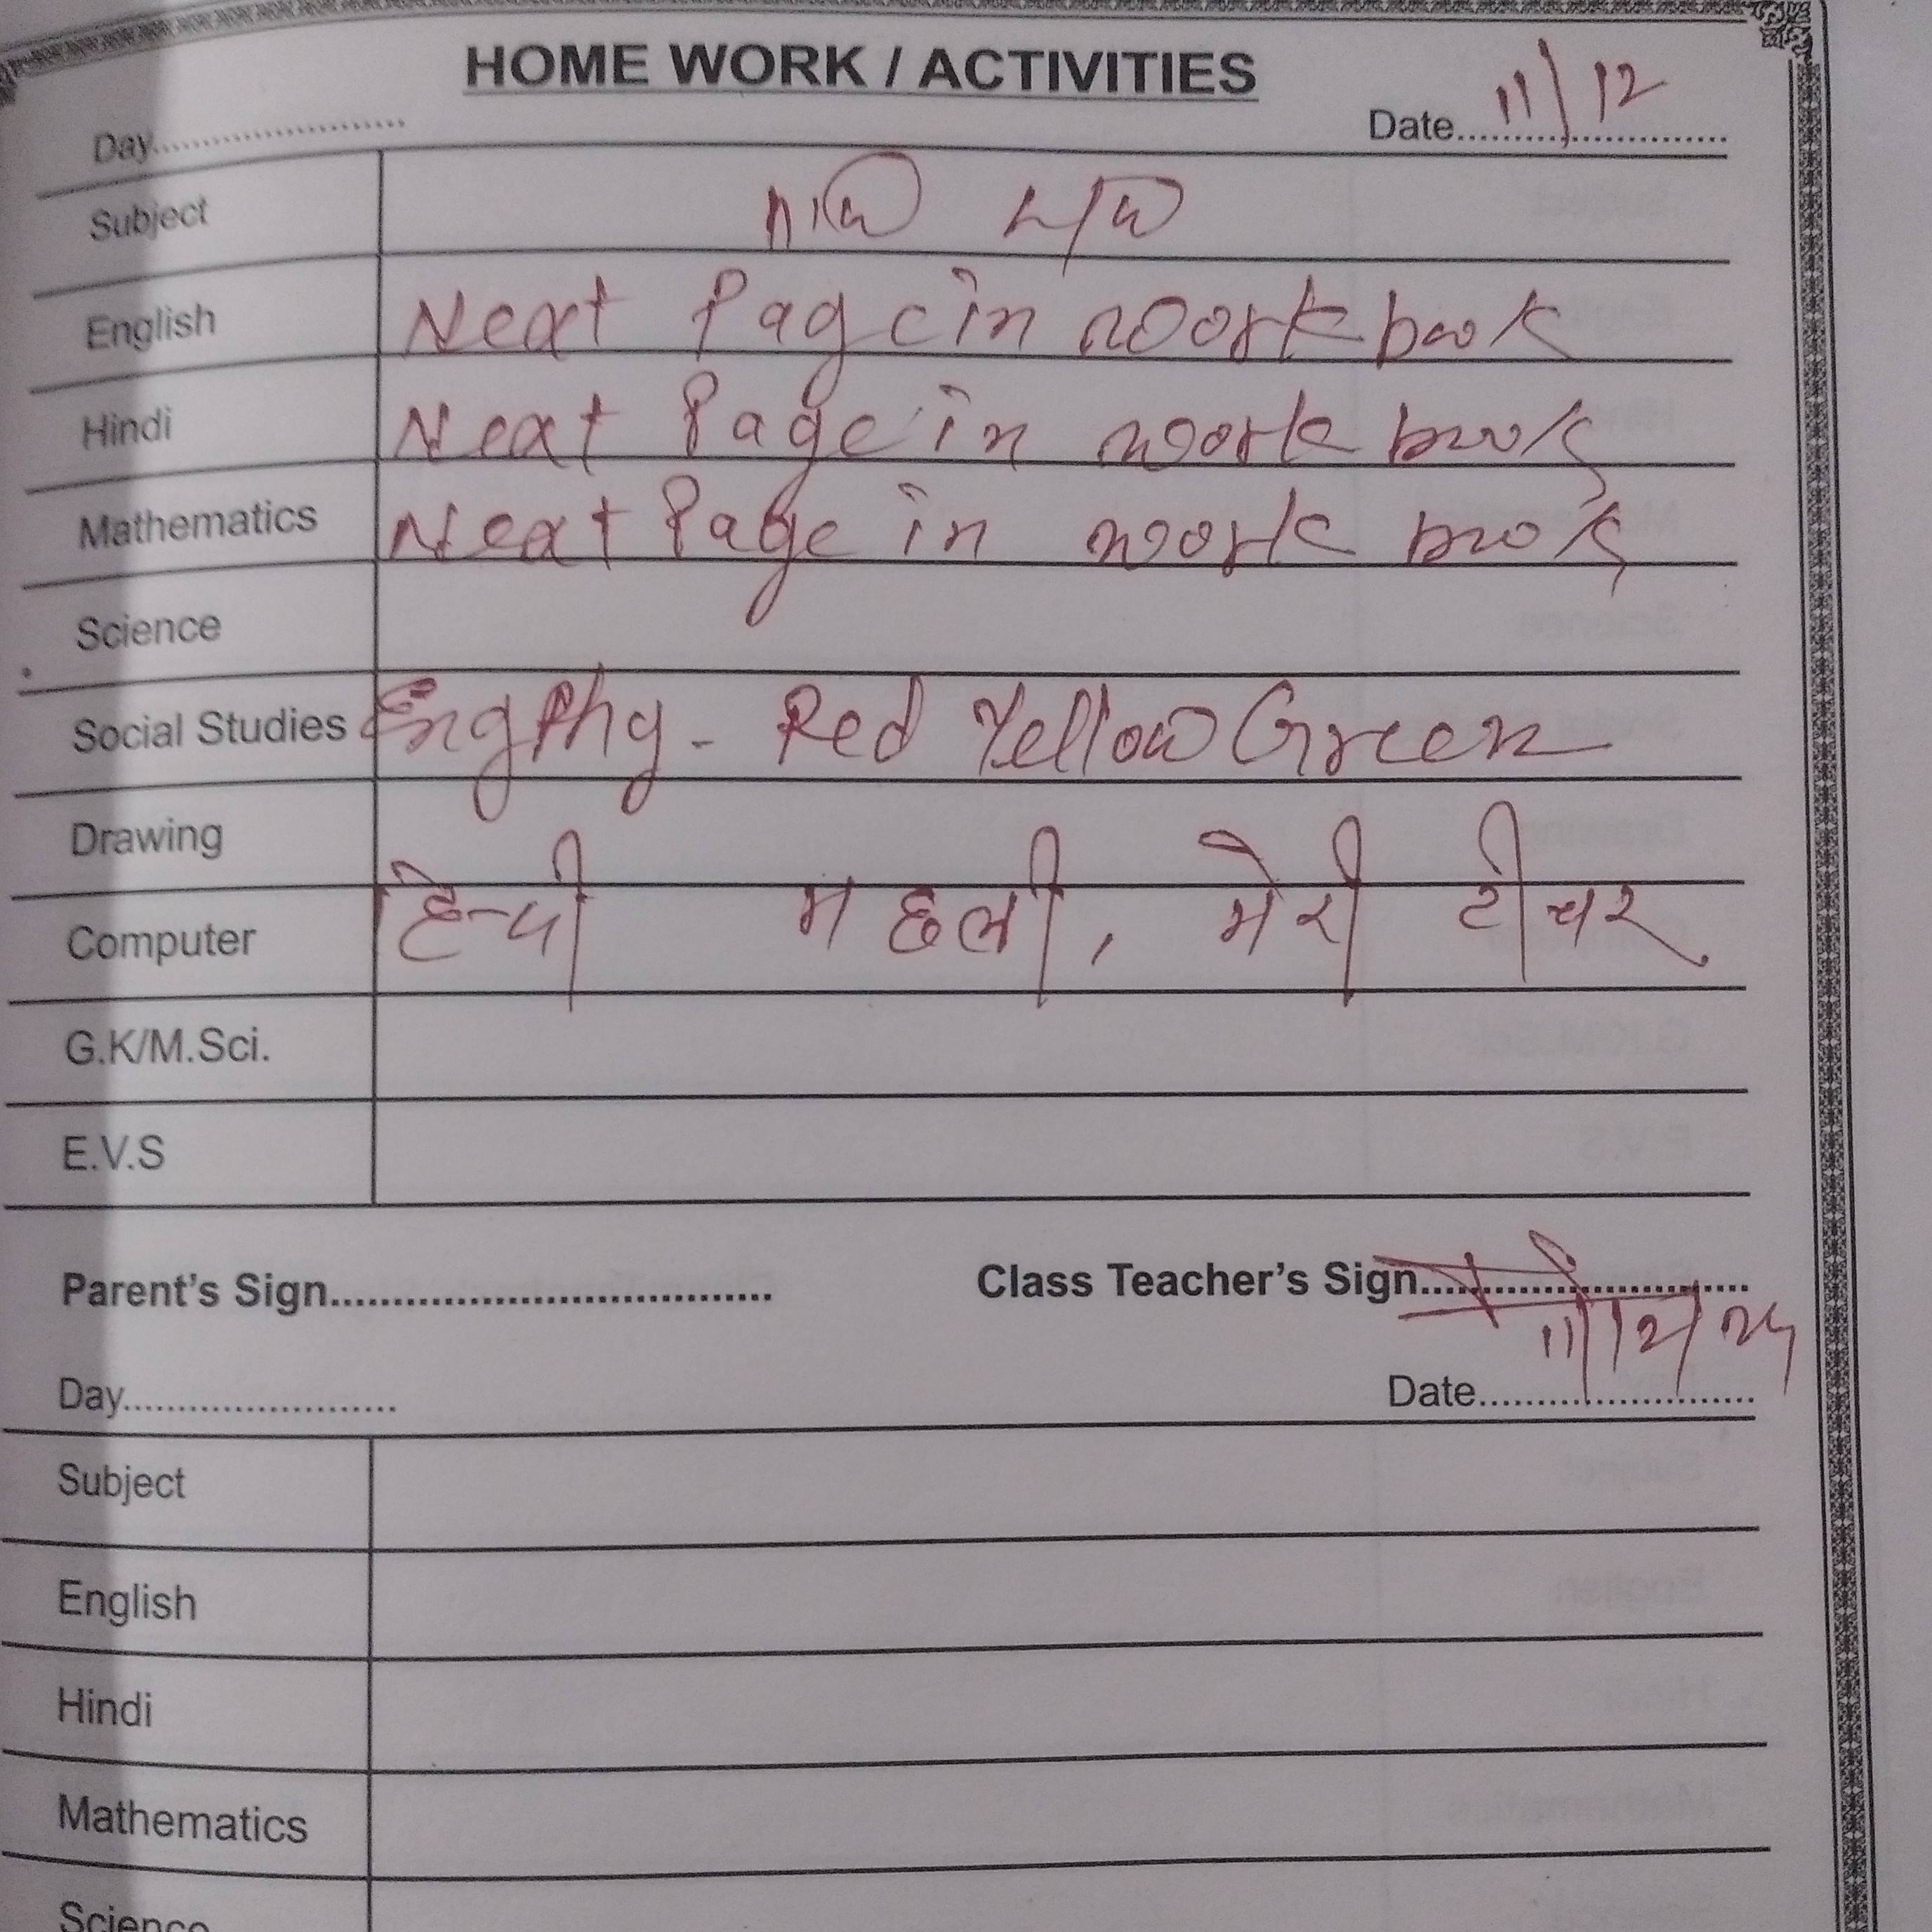 HOME WORK / ACTIVITIES
Day........................ Date 11/12
Subject
English Next Page in work book
Hindi Next Page in work book
Mathematics Next Page in work book
Science
Social Studies Eng Rhy - Red Yellow Green
Drawing
Computer हिन्दी मछली, मेरी टीचर
G.K/M.Sci.
E.V.S
Parent's Sign.................................... Class Teacher's Sign..........................
11/12/24
Day......................... Date.........................
Subject
English
Hindi
Mathematics
Science